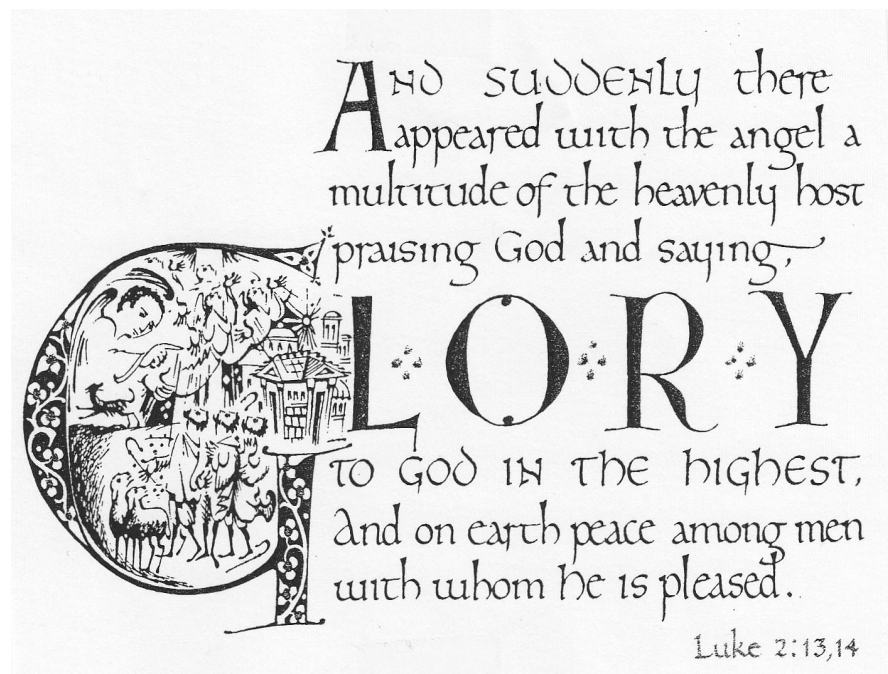 And suddenly there
appeared with the angel a
multitude of the heavenly host
praising God and saying,
GLORY
to God in the highest,
And on earth peace among men
with whom he is pleased.
Luke 2:13,14